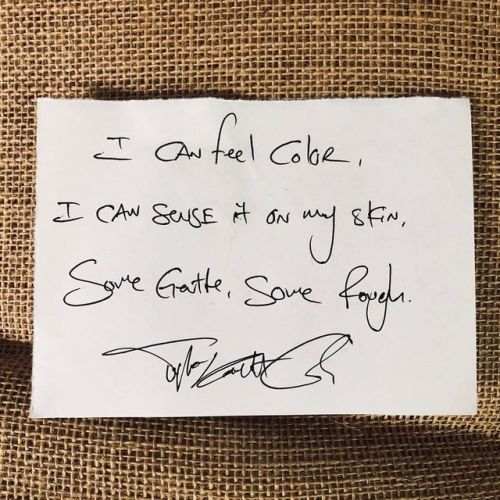 I CAN feel COLOR,
I CAN SENSE it ON my skin,
Some Gentle, Some Rough.